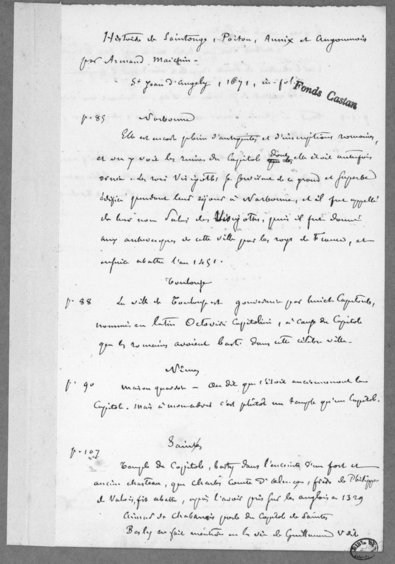 Histoire de Saintonge, Poitou, Aunix et Angoumois
par Armand Maichin -
St Jean d'Angely, 1671, in-fol
Fonds Castan
p. 85 Narbonne
Elle est encore pleine d'antiquités et d'inscriptions romaines,
et on y voit les ruines du Capitole dont elle étoit autrefois
ornée. Les rois Visigoths se servirent de ce grand et superbe
édifice pendant leur séjour à Narbonne, et il fut appellé
de leur nom Palais des Visigoths, puis il fut donné
aux archevesques de cette ville par les roys de France, et
enfin abattu l'an 1451.
Toulouse
p. 88 La ville de Toulouse est gouvernée par huict Capitouls,
nommés en latin Octoviri Capitolini, à cause du Capitole
que les romains avoient basti dans cette célèbre ville.
Nîmes
p. 90 maison quarrée - On dit que c'étoit anciennement leur
Capitole. mais à mon advis c'est plûtost un temple qu'un Capitole.
Saintes
p. 107
Temple du Capitole, basty dans l'enceinte d'un fort et
ancien chasteau, que Charles Comte d'Alençon, frère de Philippe
de Valois, fit abattre, après l'avoir pris sur les anglois en 1329
de Chabanois parle du Capitole de Saintes
Besly en fait mention en la vie de Guillaume V dit